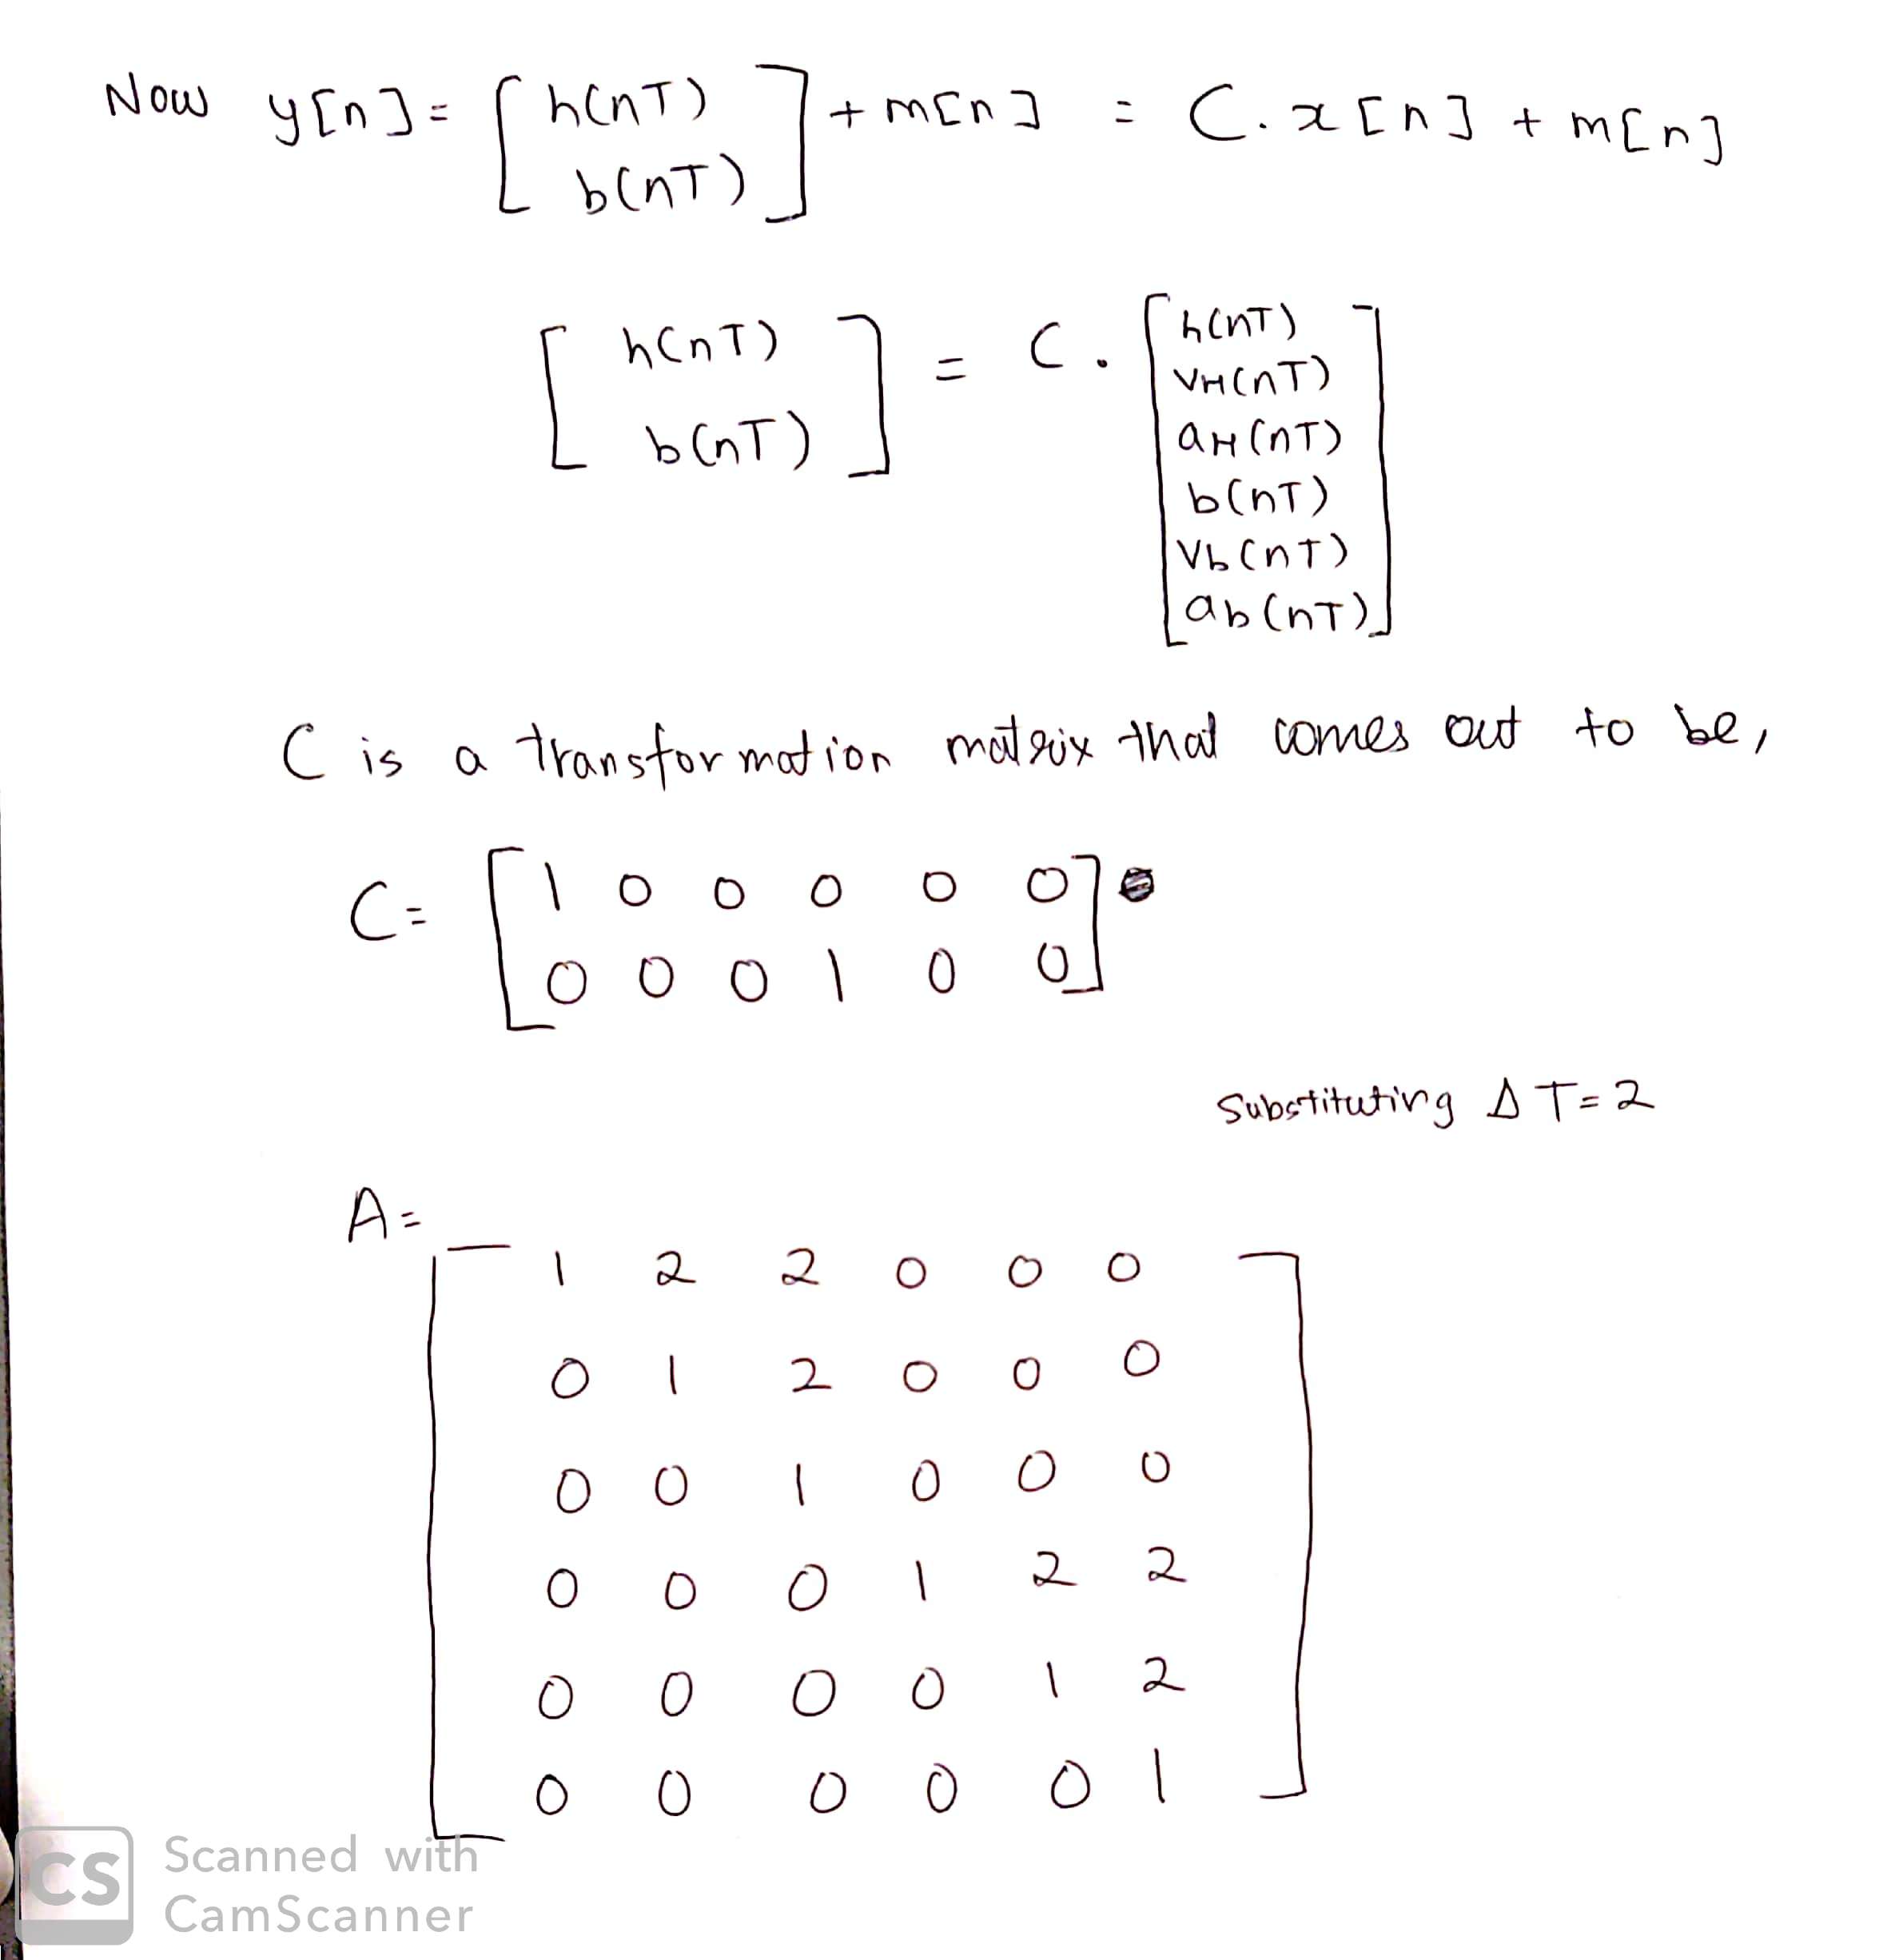 Now y[n] = [ h(nT) ] + m[n] = C. x[n] + m[n]
[ b(nT) ]
[ h(nT) ] = C. [ h(nT)
VH(nT)
aH(nT)
[ b(nT) ] b(nT)
Vb(nT)
ab(nT) ]
C is a transformation matrix that comes out to be,
C = [ 1 0 0 0 0 0 ]
[ 0 0 0 1 0 0 ]
Substituting Δ T = 2
A =
1 2 2 0 0 0
0 1 2 0 0 0
0 0 1 0 0 0
0 0 0 1 2 2
0 0 0 0 1 2
0 0 0 0 0 1
CS Scanned with
CamScanner